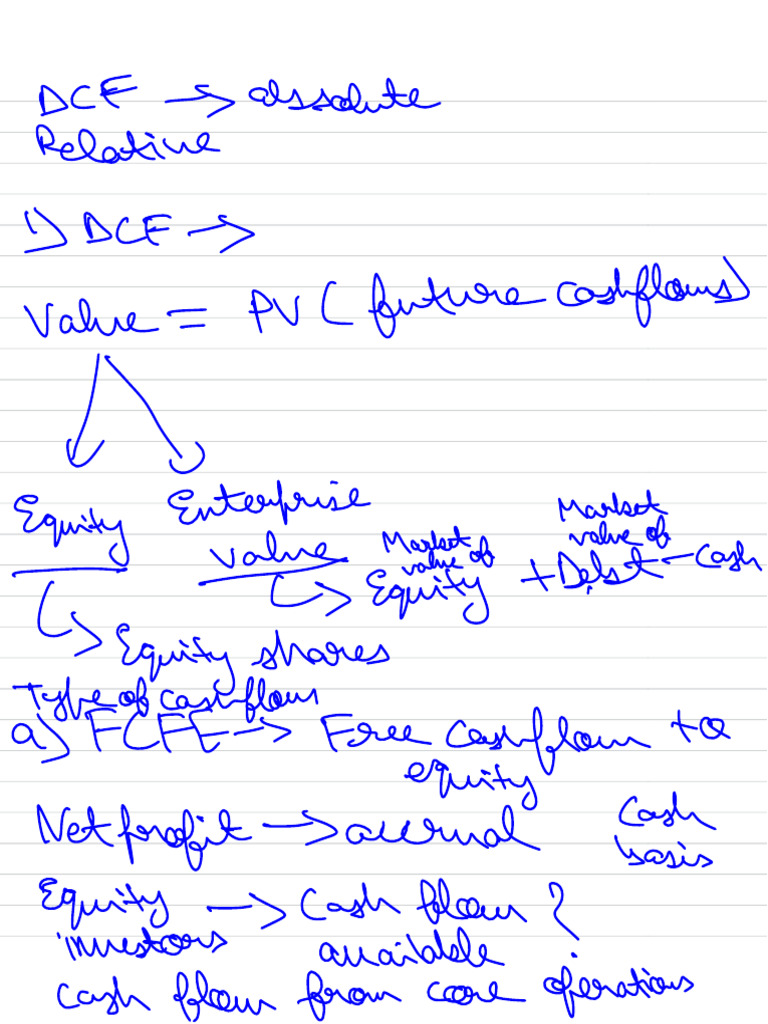 DCF → absolute
Relative
1) DCF →
Value = PV ( future cashflows)
Equity Enterprise value
Market value of Equity + Market value of Debt - Cash
Equity shares
Type of cashflow
a) FCFE → Free cashflow to
equity
Net profit → accrual Cash basis
Equity investors → Cash flow available ?
cash flow from core operations